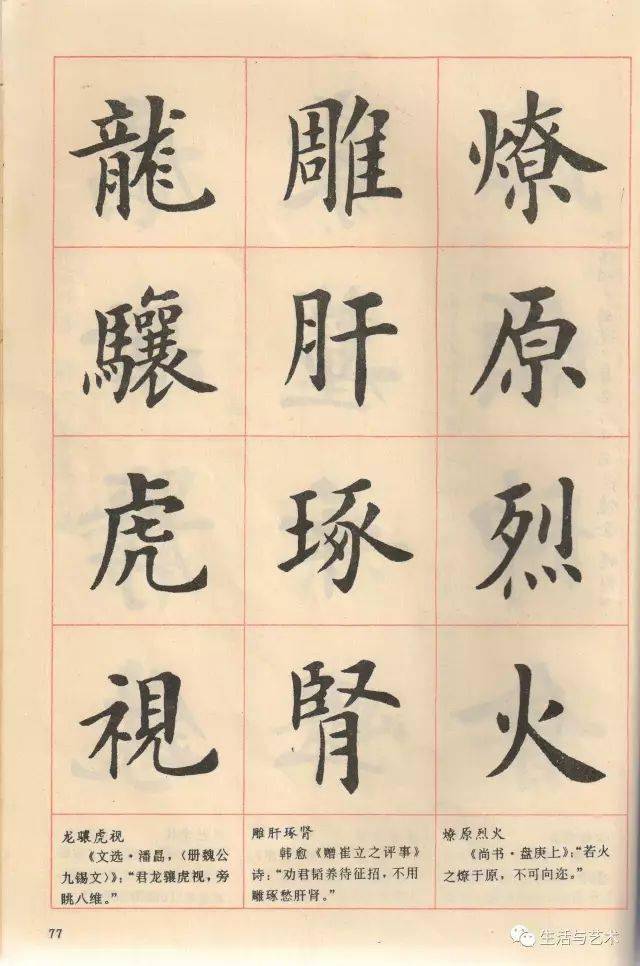 燎原烈火
雕肝琢腎
龍驤虎視
龙骧虎视
《文选·潘勗,〈册魏公
九锡文〉》:“君龙骧虎视,旁
眺八维。”
雕肝琢肾
韩愈《赠崔立之评事》
诗:“劝君韬养待征招,不用
雕琢愁肝肾。”
燎原烈火
《尚书·盘庚上》:“若火
之燎于原,不可向迩。”
77
生活与艺术